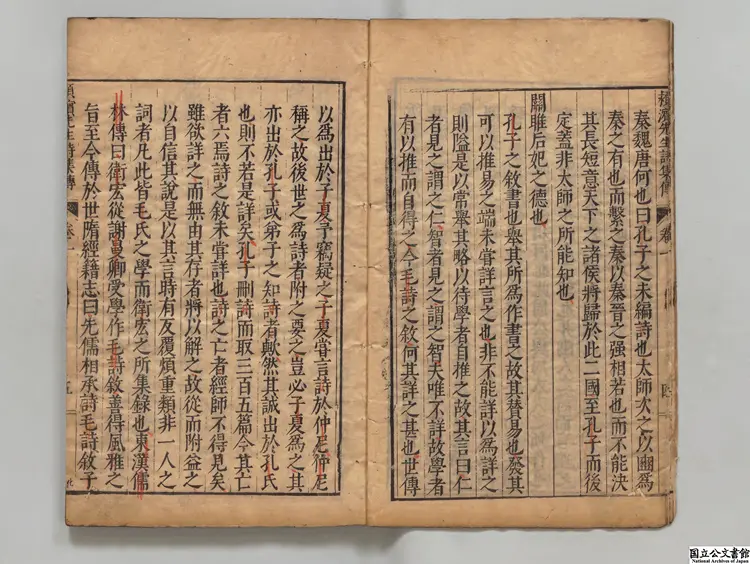 秦魏唐何也曰孔子之未編詩也太師次之以豳爲
秦之有也而繫之秦以秦晉之强相若也而不能決
其長短意天下之諸侯將歸於此二國至孔子而後
定蓋非太師之所能知也
關雎后妃之德也
孔子之敘書也舉其所爲作書之故其賛易也發其
可以推易之端未嘗詳言之也非不能詳以爲詳之
則隘是以常舉其略以待學者自推之故其言曰仁
者見之謂之仁智者見之謂之智夫唯不詳故學者
有以推而自得之今毛詩之敘何其詳之甚也世傳
以爲出於子夏予竊疑之子夏嘗言詩於仲尼仲尼
稱之故後世之爲詩者附之要之豈必子夏爲之其
亦出於孔子或弟子之知詩者歟然其誠出於孔氏
也則不若是詳矣孔子刪詩而取三百五篇今其亡
者六焉詩之敘未嘗詳也詩之亡者經師不得見矣
雖欲詳之而無由其存者將以解之故從而附益之
以自信其說是以其言時有反覆煩重類非一人之
詞者凡此皆毛氏之學而衛宏之所集錄也東漢儒
林傳曰衛宏從謝曼卿受學作毛詩敘善得風雅之
旨至今傳於世隋經籍志曰先儒相承謂毛詩敘子
卷一
五
国立公文書館
National Archives of Japan